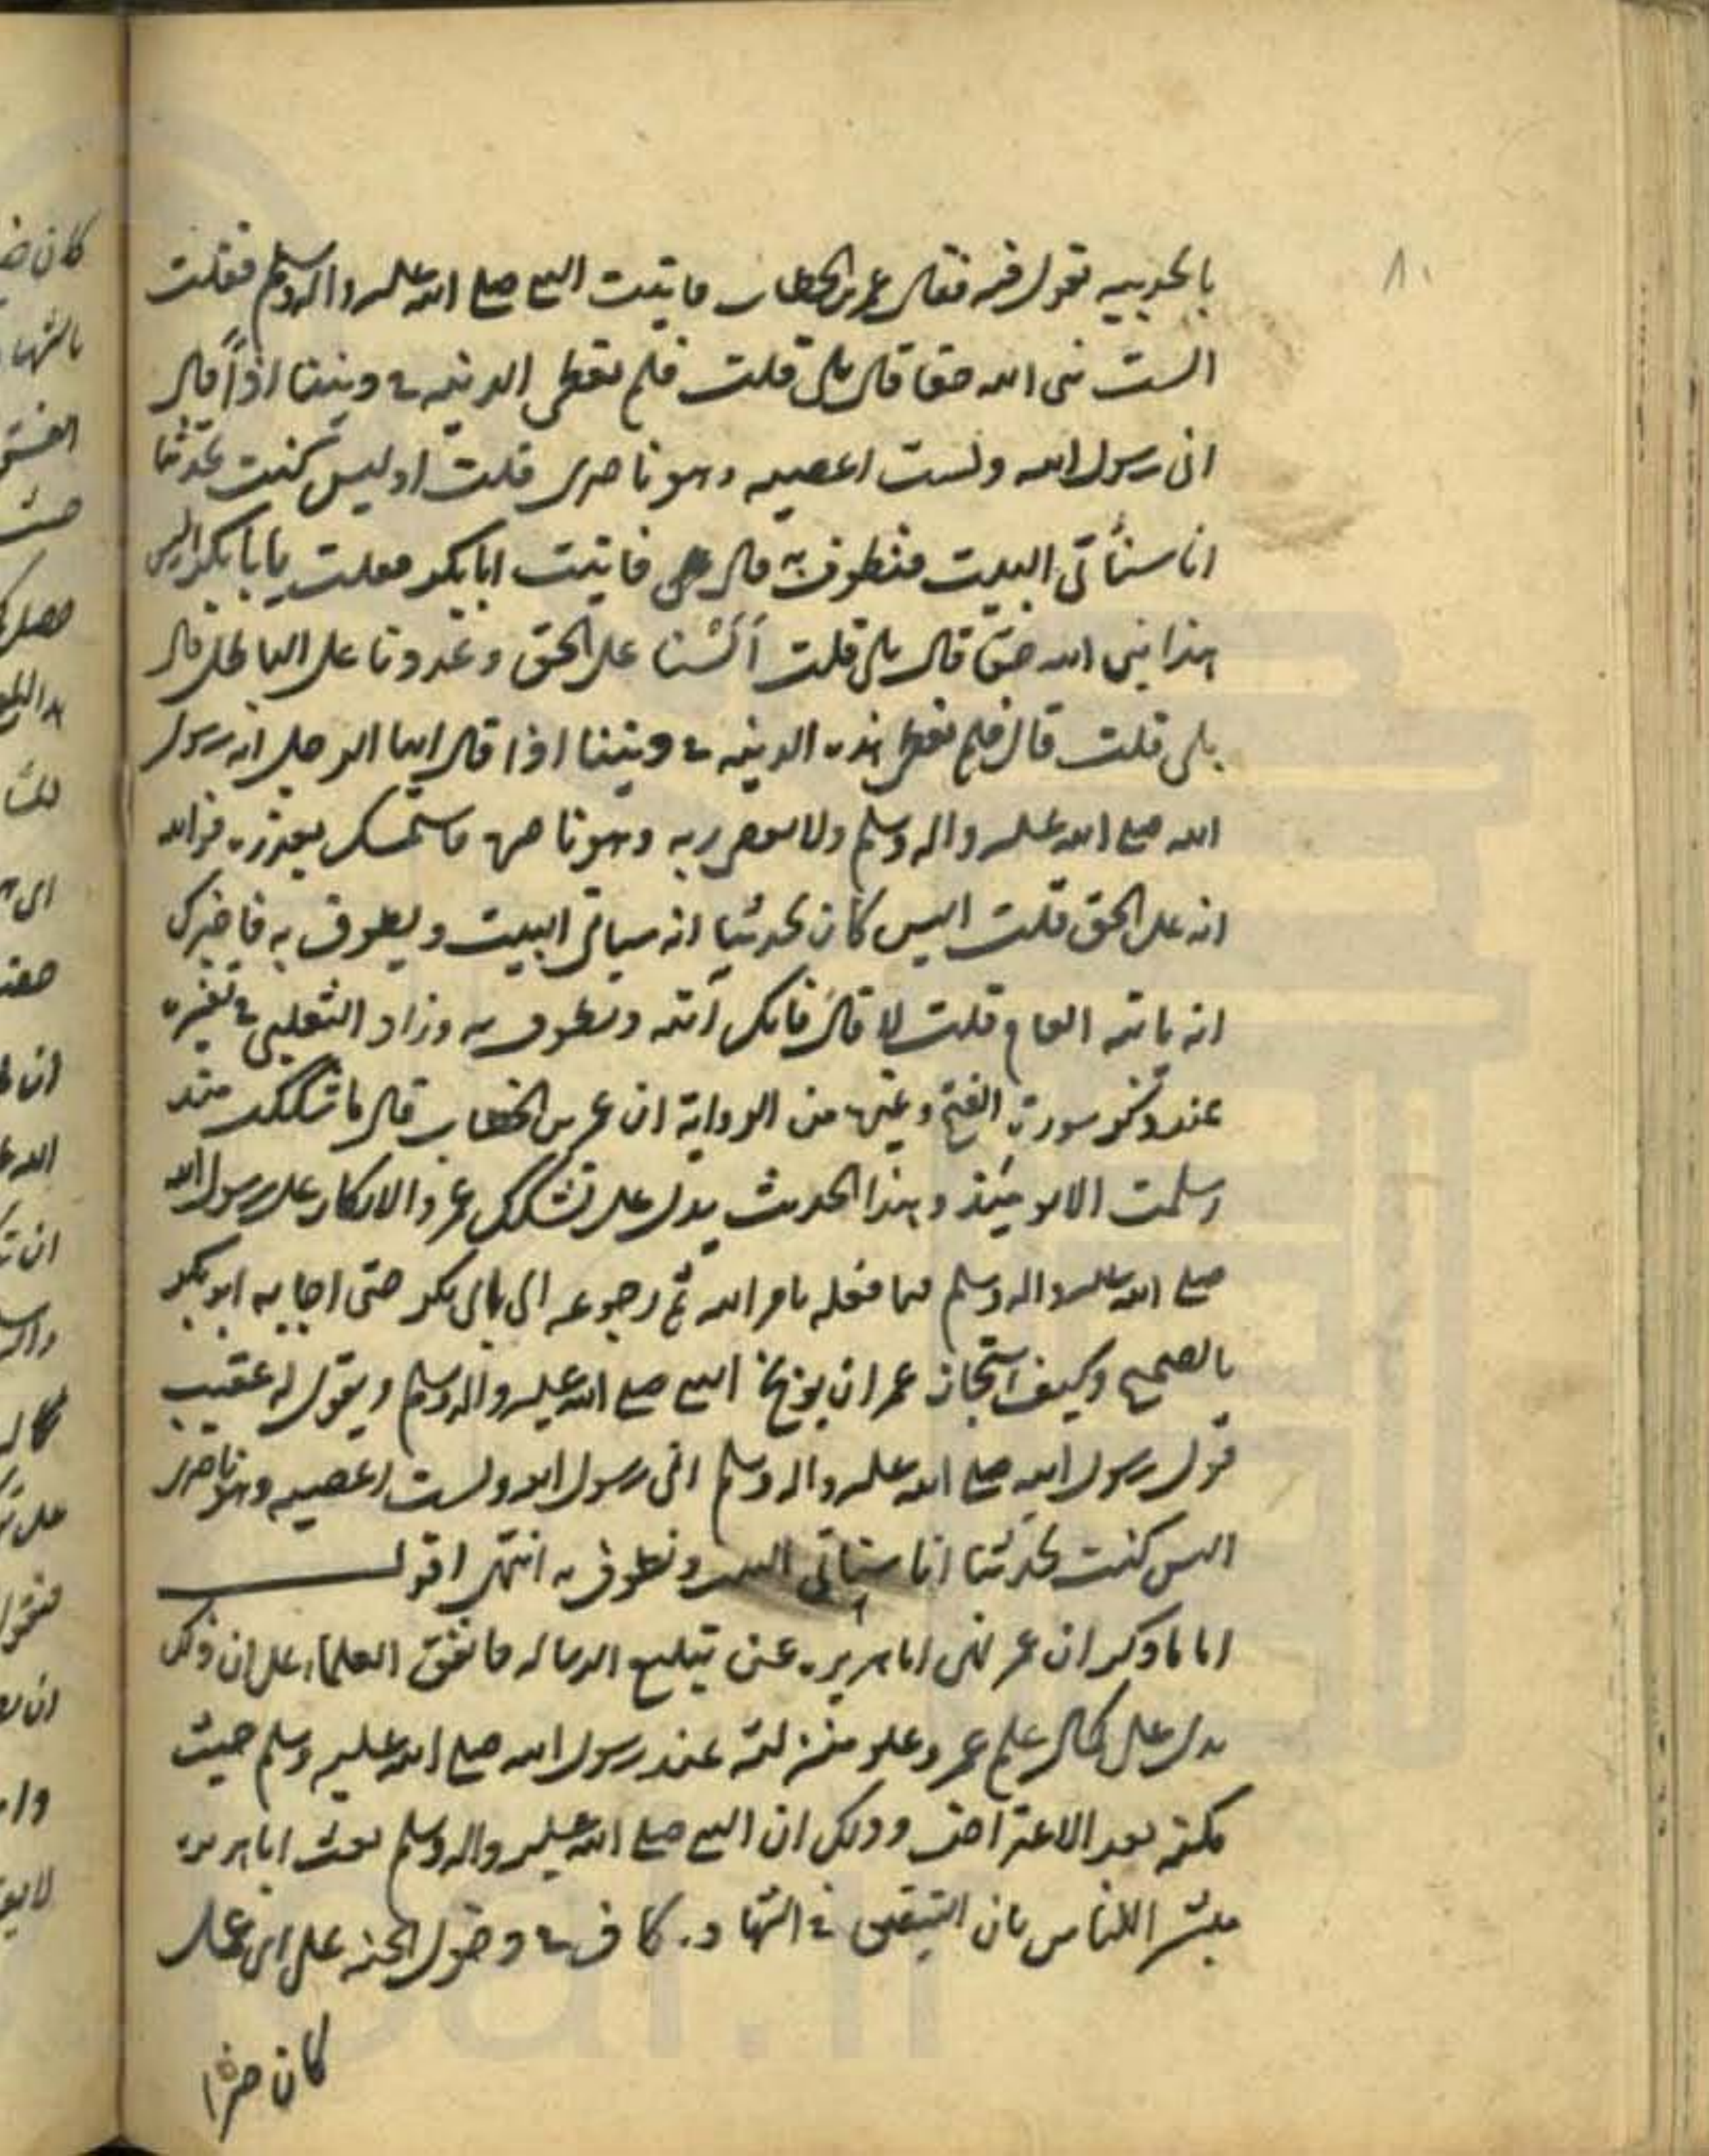 ٨٠
بالحديبيه يقول فيه فقال عمر بن الخطاب فاتيت النبي صلى الله عليه واله وسلم فقلت
الست نبى الله حقا قال بلى قلت فلم نعطى الدنيه في ديننا اذاً قال
انى رسول الله ولست اعصيه وهو ناصرى قلت اوليس كنت تحدثنا
انا سنأتى البيت فنطوف به قال فاتيت ابا بكر فقلت يا با بكر اليس
هذا نبى الله حق قال بلى قلت ألسنا على الحق وعدونا على الباطل قال
بلى قلت قال فلم نعطى هذه الدنيه في ديننا اذا قال ايها الرجل انه رسول
الله صلى الله عليه واله وسلم ولا يعصى ربه وهو ناصره فاستمسك بعذره فوالله
انه على الحق قلت اليس كان يحدثنا انه سياتى البيت ويطوف به فاخبرك
انه ياتيه العام قلت لا قال فانك آتيه وتطوف به وزاد الثعلبى في تفسيره
عند ذكر سورة الفتح وغيره من الرواية ان عمر بن الخطاب قال ما شككت منذ
اسلمت الا يومئذ وهذا الحديث يدل على تشكك عمر والانكار على رسول الله
صلى الله عليه واله وسلم فيما فعله بامر الله ثم رجوعه الى ابى بكر حتى اجابه ابو بكر
بالصحيح وكيف استجاز عمر ان يوبخ النبى صلى الله عليه واله وسلم ويقول له عقيب
قول رسول الله صلى الله عليه واله وسلم انى رسول الله ولست اعصيه وهو ناصرى
اليس كنت تحدثنا انا سناتى البيت ونطوف به انتهى اقول
اما ما ذكر ان عمر نهى ابا هريره عن تبليغ الرساله فاتفق العلماء على ان ذلك
يدل على كمال علم عمر وعلو منزلته عند رسول الله صلى الله عليه وسلم حيث
مكنه بعد الاعتراض وذلك ان النبى صلى الله عليه واله وسلم بعث ابا هريره
مبشر اللناس بان التيقن في الشهاده كاف في دخول الجنه على اى عمل
كان خيرا